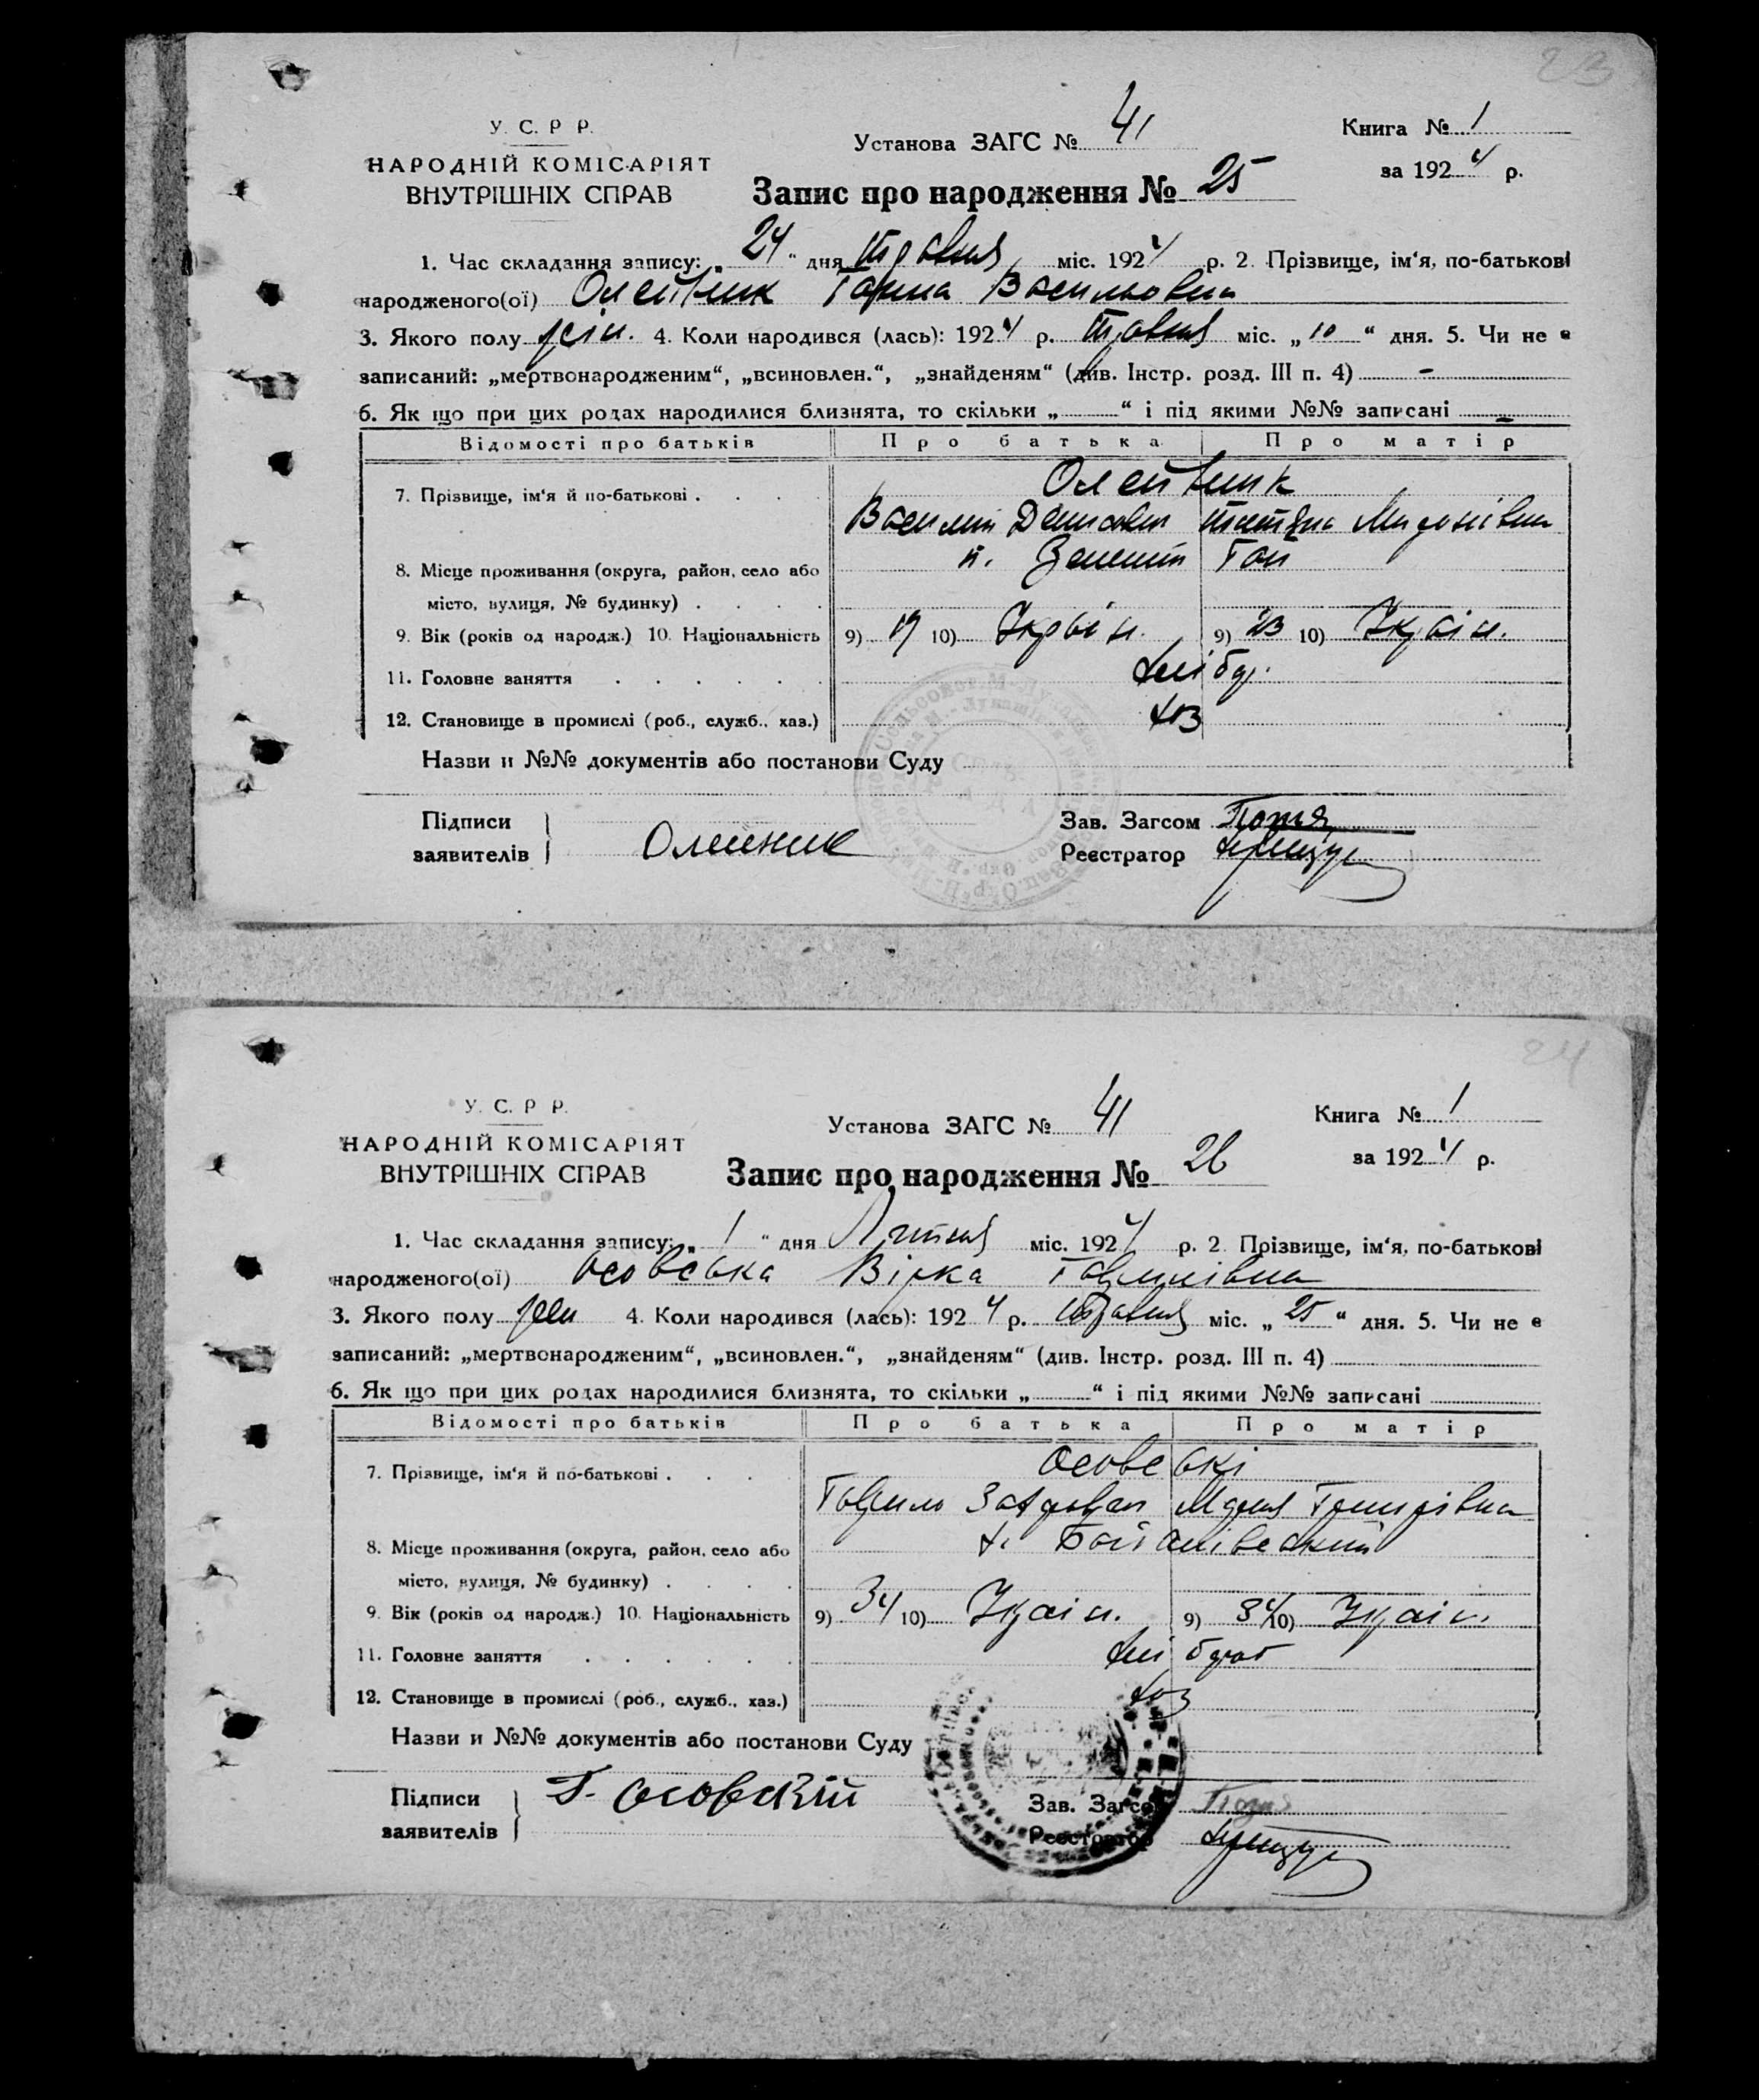 23
У. С. Р Р.
НАРОДНІЙ КОМІСАРІЯТ
ВНУТРІШНІХ СПРАВ
Установа ЗАГС № 41
Книга № 1
за 1924 р.
Запис про народження № 25
1. Час складання запису: „24“ дня Травня міс. 1924 р. 2. Прізвище, ім‘я, по-батькові
народженого(ої) Олейник Ганна Васильовна
3. Якого полу жін. 4. Коли народився (лась): 1924 р. Травня міс. „10“ дня. 5. Чи не є
записаний: „мертвонародженим“, „всиновлен.“, „знайденям“ (див. Інстр. розд. III п. 4) -
6. Як що при цих родах народилися близнята, то скільки „ “ і під якими №№ записані -
Відомості про батьків Про батька Про матір
7. Прізвище, ім‘я й по-батькові . . . . Олейник
Василь Денисович Тетяна Миронівна
8. Місце проживання (округа, район, село або Гай
місто, вулиця, № будинку) . . . .
9. Вік (років од народж.) 10. Національність 9) 19 10) Україн. 9) 23 10) Україн.
11. Головне заняття . . . . . . хлібор.
12. Становище в промислі (роб., служб., хаз.) хоз
Назви и №№ документів або постанови Суду
Підписи
заявителів
Олейник
Зав. Загсом
Реєстратор
24
У. С. Р Р.
НАРОДНІЙ КОМІСАРІЯТ
ВНУТРІШНІХ СПРАВ
Установа ЗАГС № 41
Книга № 1
за 1924 р.
Запис про народження № 26
1. Час складання запису: „1“ дня Липня міс. 1924 р. 2. Прізвище, ім‘я, по-батькові
народженого(ої) Осовська Вірка Гаврилівна
3. Якого полу жен 4. Коли народився (лась): 1924 р. травня міс. „25“ дня. 5. Чи не є
записаний: „мертвонародженим“, „всиновлен.“, „знайденям“ (див. Інстр. розд. III п. 4)
6. Як що при цих родах народилися близнята, то скільки „ “ і під якими №№ записані
Відомості про батьків Про батька Про матір
7. Прізвище, ім‘я й по-батькові . . . . Осовські
Гаврило Мария Григорівна
8. Місце проживання (округа, район, село або х.
місто, вулиця, № будинку) . . . .
9. Вік (років од народж.) 10. Національність 9) 34 10) Україн. 9) 34 10) Україн.
11. Головне заняття . . . . . . хлібороб
12. Становище в промислі (роб., служб., хаз.) хоз
Назви и №№ документів або постанови Суду
Підписи
заявителів
Г. Осовский
Зав. Загсом
Реєстратор